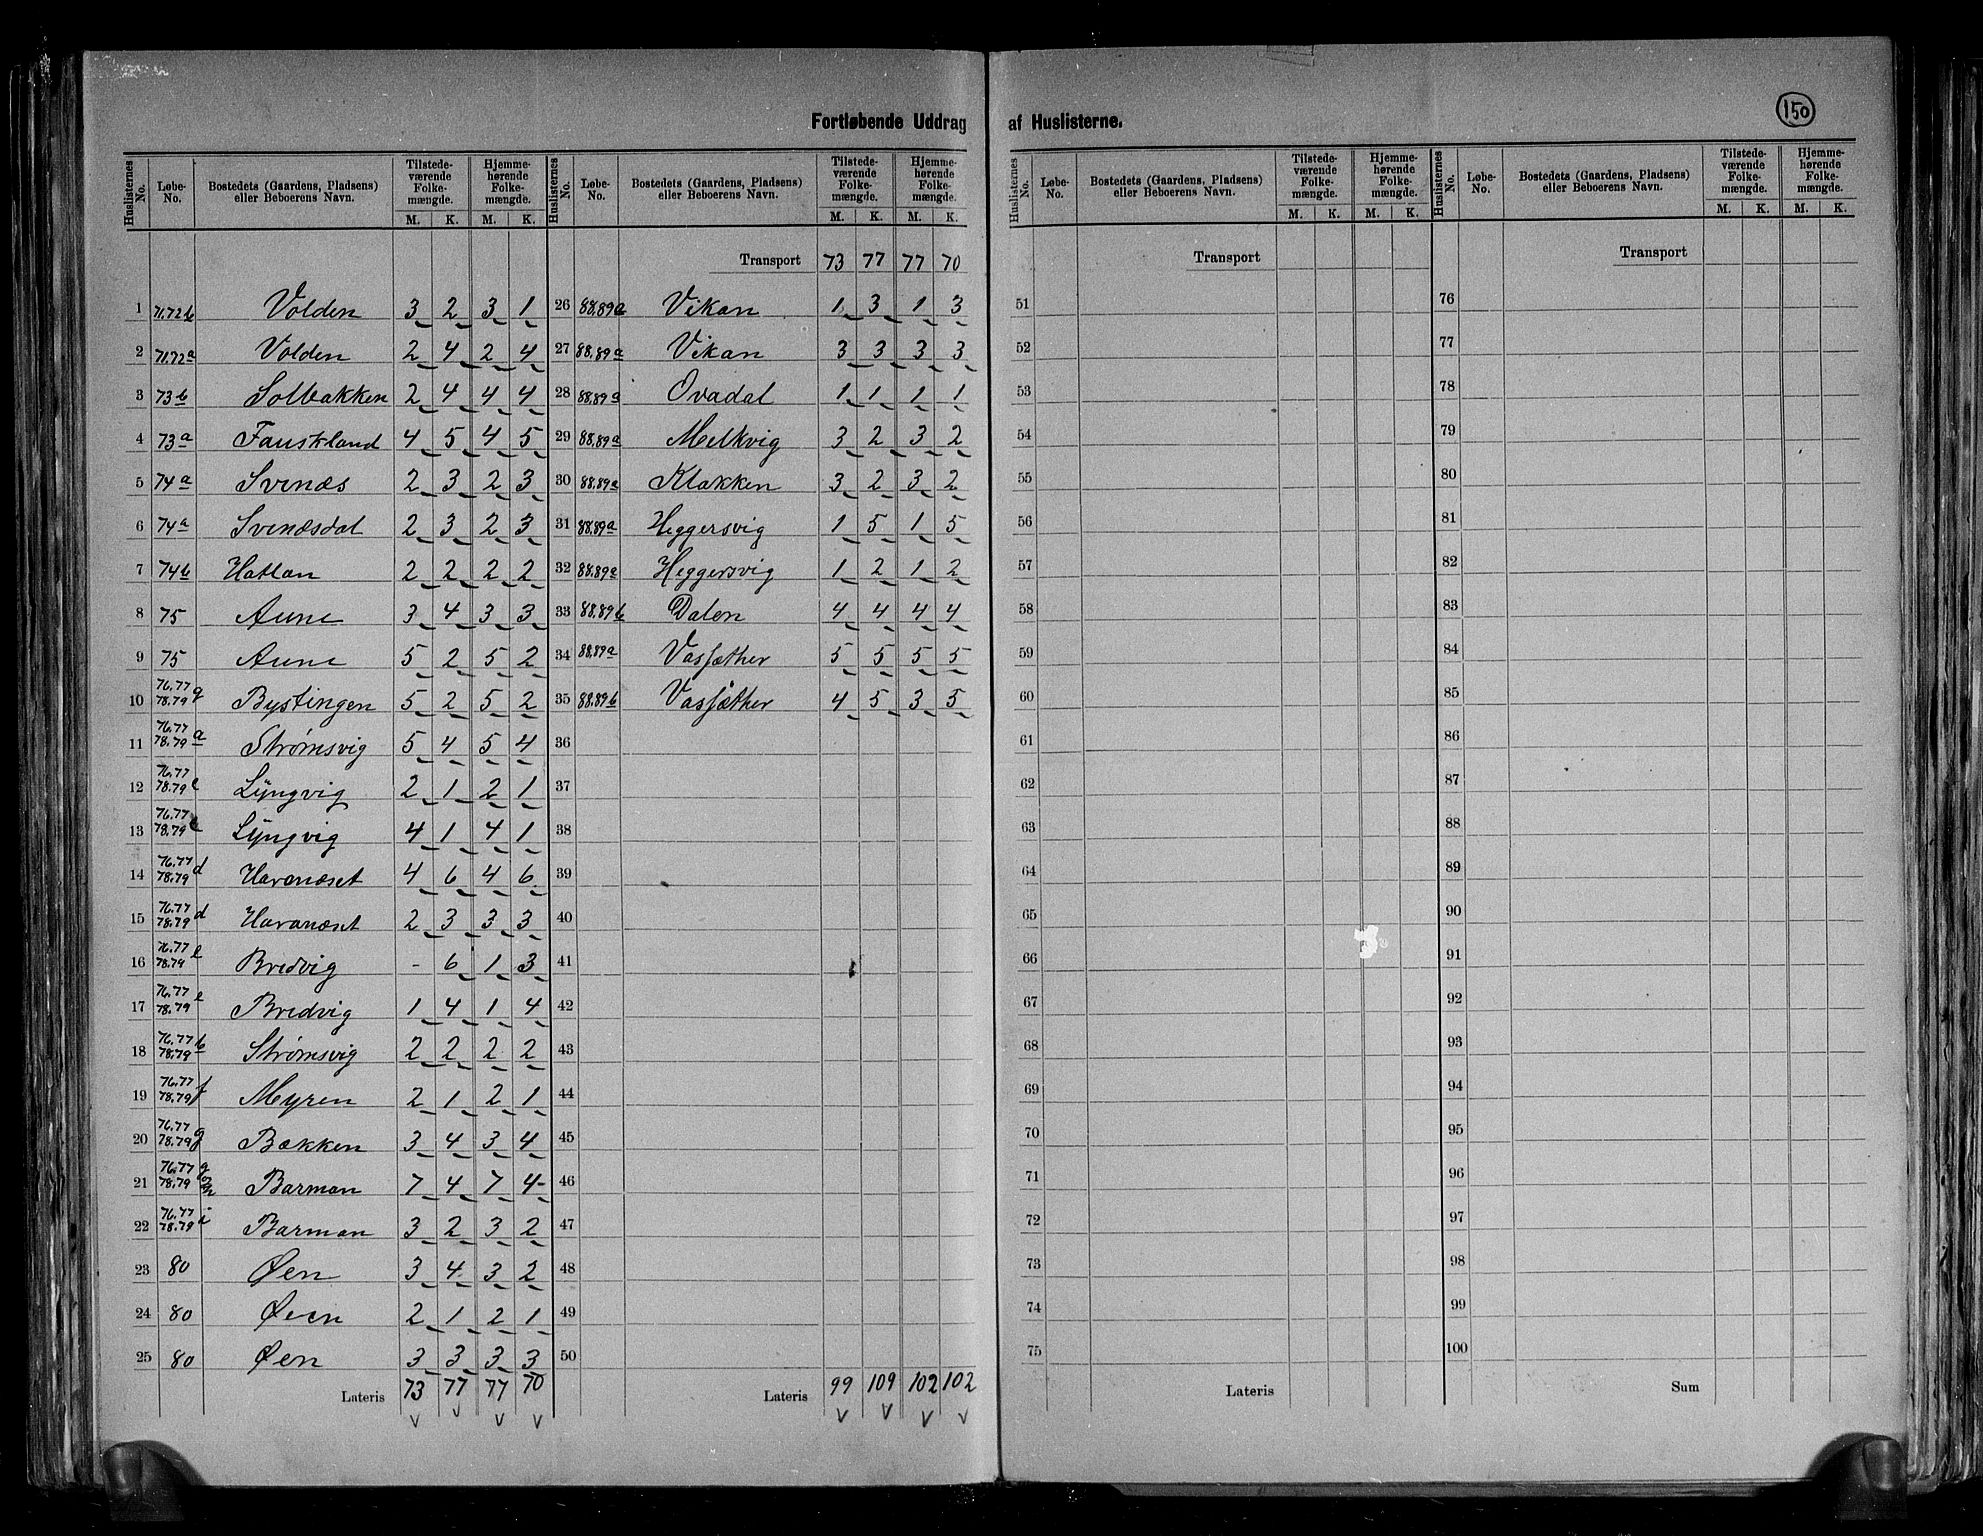 150
Fortløbende Uddrag af Huslisterne.
Huslisternes No. | Løbe-No. | Bostedets (Gaardens, Pladsens) eller Beboerens Navn. | Tilstedeværende Folkemængde. M. K. | Hjemmehørende Folkemængde. M. K.
1 71.72b Volden 3 2 3 1
2 71.72a Volden 2 4 2 4
3 73b Solbakken 2 4 4 4
4 73a Fauskland 4 5 4 5
5 74a Svenæs 2 3 2 3
6 74a Svenæsdal 2 3 2 3
7 74b Hattan 2 2 2 2
8 75 Aune 3 4 3 3
9 75 Aune 5 2 5 2
10 76.77 78.79 g Bystingen 5 2 5 2
11 76.77 78.79 a Strømsvig 5 4 5 4
12 76.77 78.79 c Lyngvig 2 1 2 1
13 76.77 78.79 c Lyngvig 4 1 4 1
14 76.77 78.79 d Havnæset 4 6 4 6
15 76.77 78.79 d Havnæset 2 3 3 3
16 76.77 78.79 e Bredvig - 6 1 3
17 76.77 78.79 e Bredvig 1 4 1 4
18 76.77 78.79 b Strømsvig 2 2 2 2
19 76.77 78.79 f Myren 2 1 2 1
20 76.77 78.79 g Bækken 3 4 3 4
21 76.77 78.79 Barman 7 4 7 4
22 76.77 78.79 i Barman 3 2 3 2
23 80 Øen 3 4 3 2
24 80 Øen 2 1 2 1
25 80 Øen 3 3 3 3
Lateris 73 77 77 70
Huslisternes No. | Løbe-No. | Bostedets (Gaardens, Pladsens) eller Beboerens Navn. | Tilstedeværende Folkemængde. M. K. | Hjemmehørende Folkemængde. M. K.
Transport 73 77 77 70
26 88.89a Vikan 1 3 1 3
27 88.89a Vikan 3 3 3 3
28 88.89a Ovadal 1 1 1 1
29 88.89a Melkvig 3 2 3 2
30 88.89a Klakken 3 2 3 2
31 88.89a Heggersvig 1 5 1 5
32 88.89a Heggersvig 1 2 1 2
33 88.89b Dalen 4 4 4 4
34 88.89a Vasfæther 5 5 5 5
35 88.89b Vasfæther 4 5 3 5
36
37
38
39
40
41
42
43
44
45
46
47
48
49
50
Lateris 99 109 102 102
Huslisternes No. | Løbe-No. | Bostedets (Gaardens, Pladsens) eller Beboerens Navn. | Tilstedeværende Folkemængde. M. K. | Hjemmehørende Folkemængde. M. K.
Transport
51
52
53
54
55
56
57
58
59
60
61
62
63
64
65
66
67
68
69
70
71
72
73
74
75
Lateris
Huslisternes No. | Løbe-No. | Bostedets (Gaardens, Pladsens) eller Beboerens Navn. | Tilstedeværende Folkemængde. M. K. | Hjemmehørende Folkemængde. M. K.
Transport
76
77
78
79
80
81
82
83
84
85
86
87
88
89
90
91
92
93
94
95
96
97
98
99
100
Sum